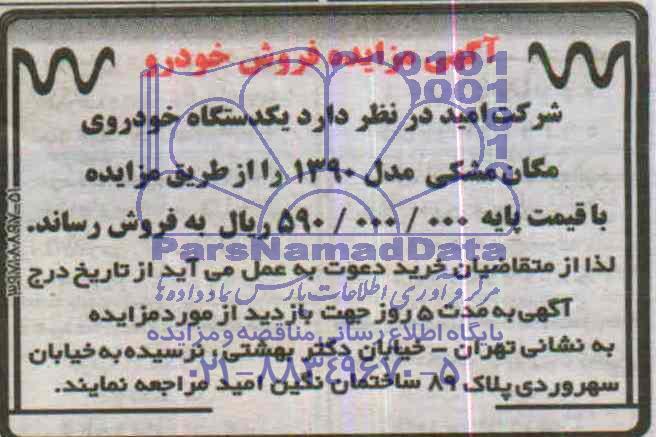 آگهی مزایده فروش خودرو
شرکت امید در نظر دارد یکدستگاه خودروی
مگان مشکی مدل ۱۳۹۰ را از طریق مزایده
با قیمت پایه ۵۹۰/۰۰۰/۰۰۰ ریال به فروش رساند.
ParsNamadData
لذا از متقاضیان خرید دعوت به عمل می آید از تاریخ درج
مرکز فرآوری اطلاعات پارس نماد داده ها
آگهی به مدت ۵ روز جهت بازدید از مورد مزایده
پایگاه اطلاع رسانی مناقصه و مزایده
به نشانی تهران - خیابان دکتر بهشتی نرسیده به خیابان
۰۲۱-۸۸۳۴۹۶۷۰-۵
سهروردی پلاک ۸۹ ساختمان نگین امید مراجعه نمایند.